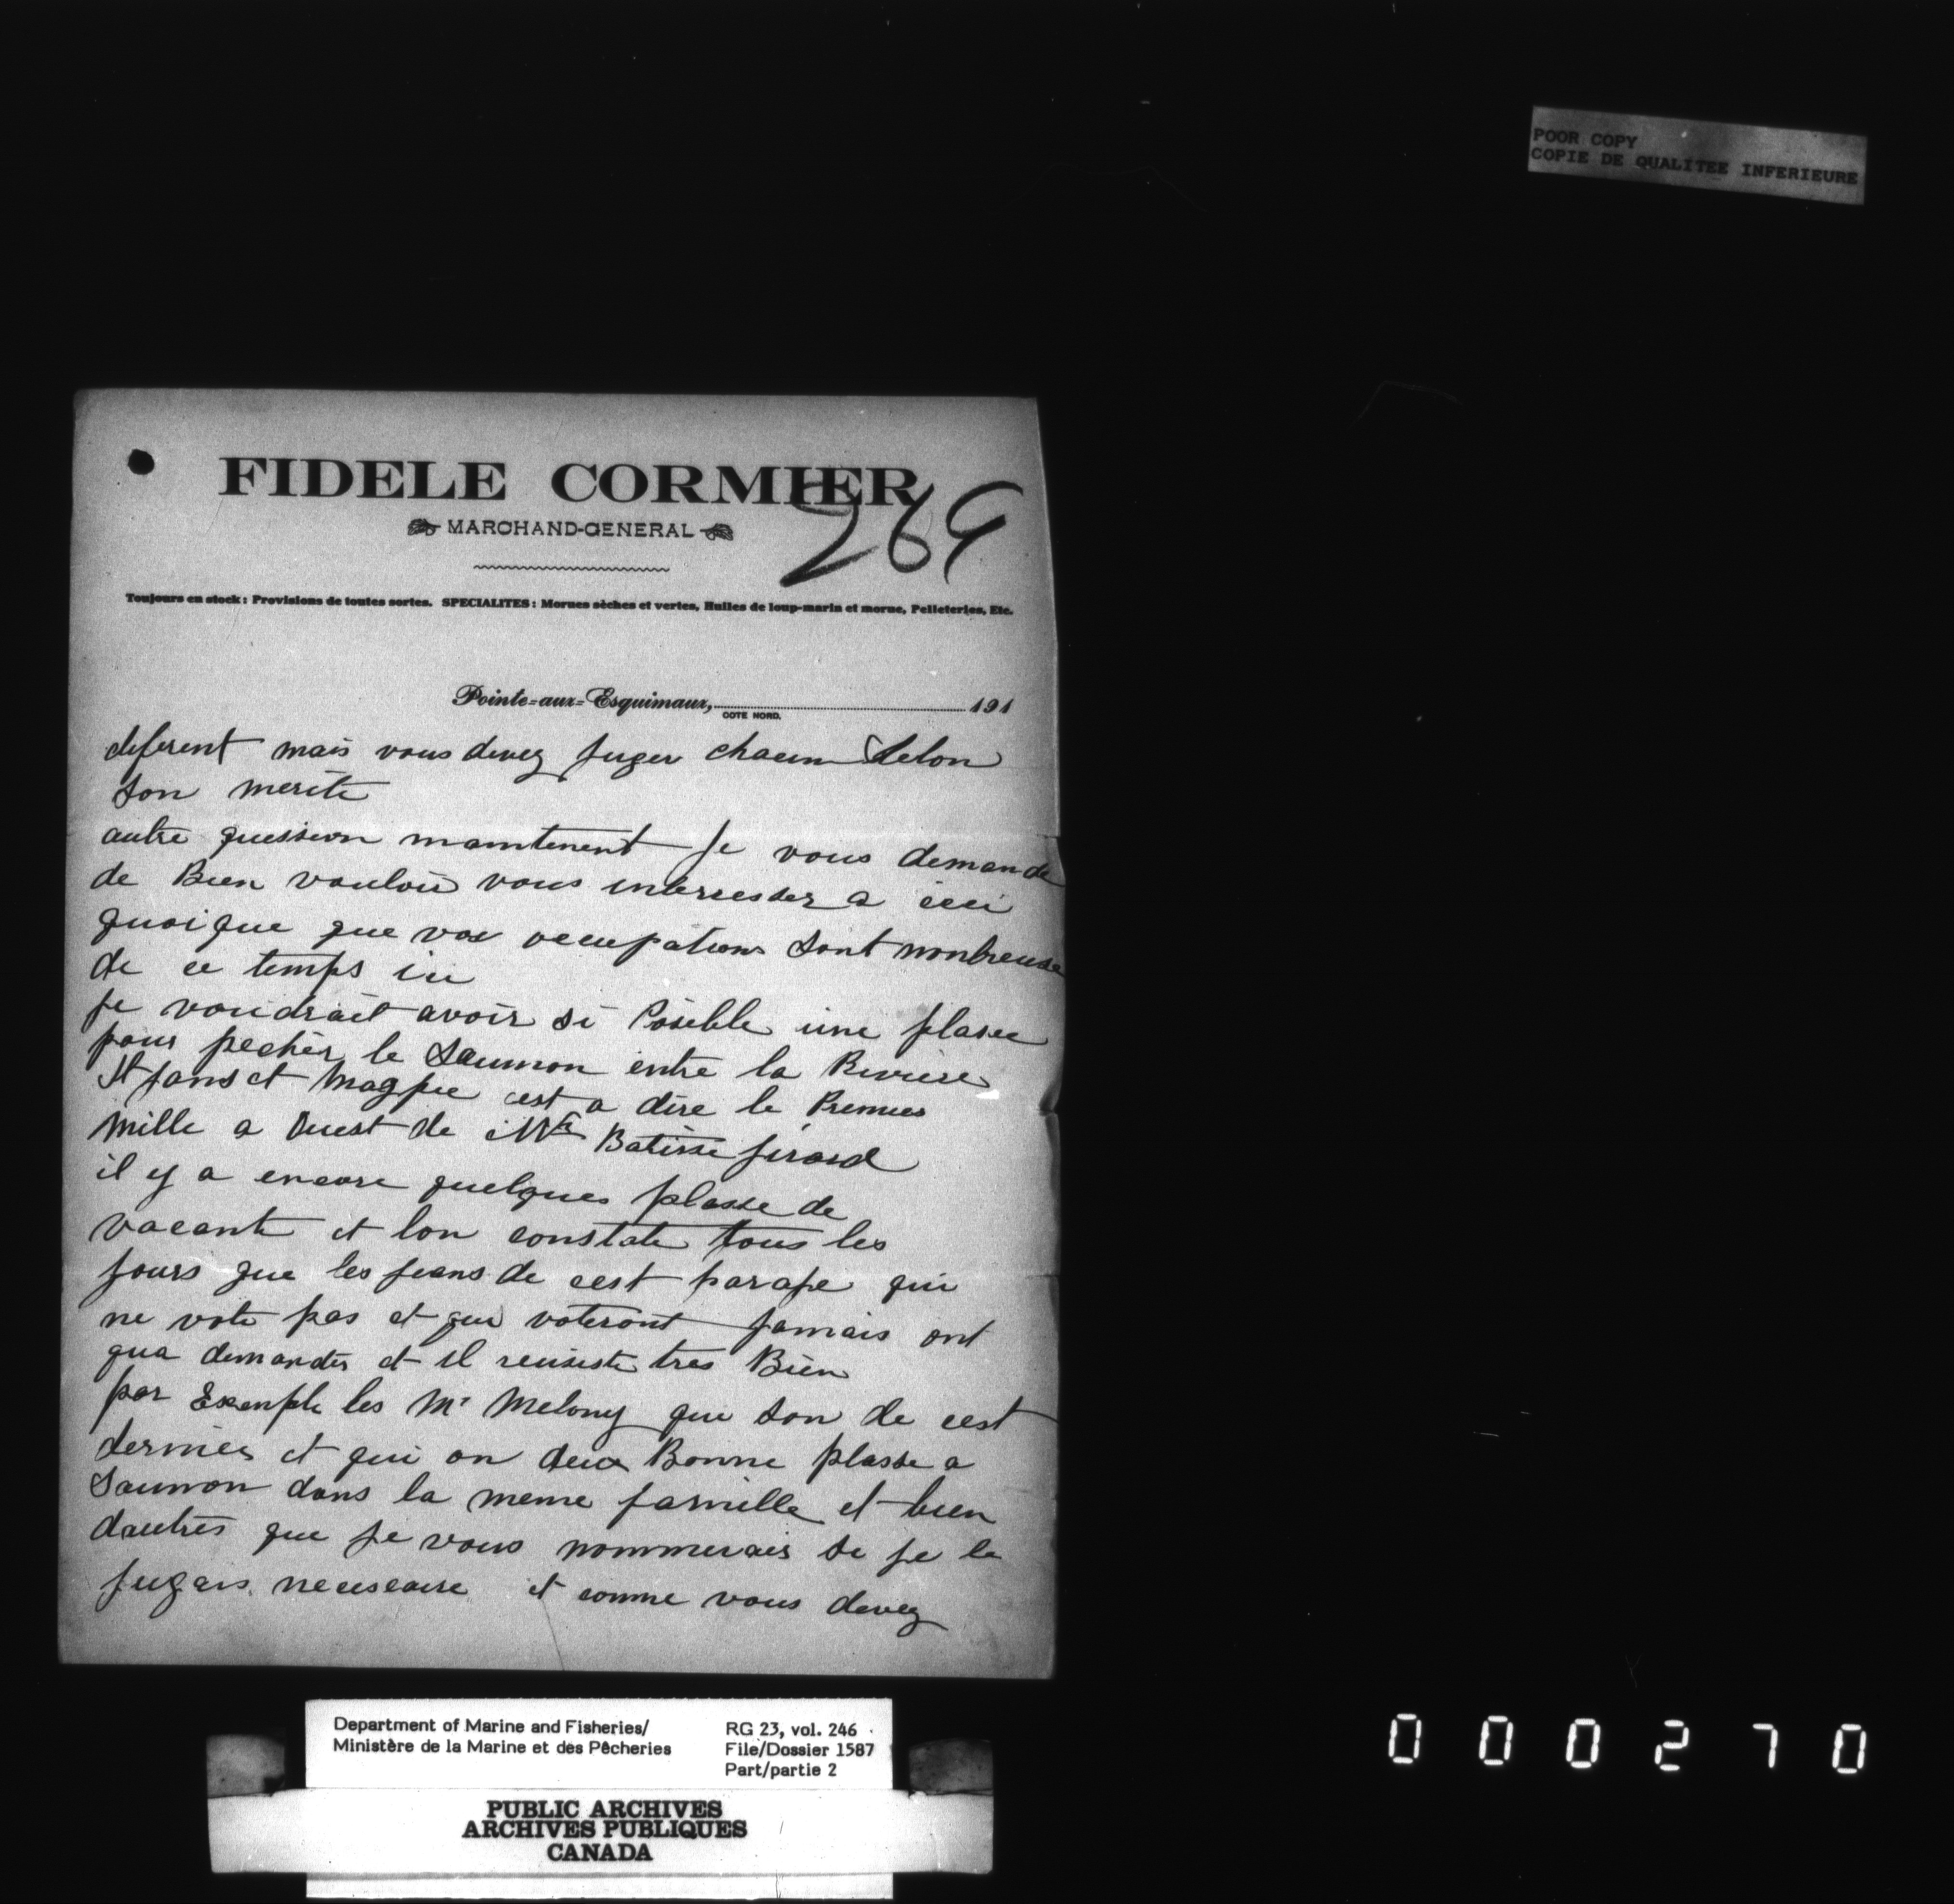 POOR COPY
COPIE DE QUALITEE INFERIEURE
FIDELE CORMIER
269
MARCHAND-GENERAL
Toujours en stock: Provisions de toutes sortes. SPECIALITES: Morues sèches et vertes, Huiles de loup-marin et morue, Pelleteries, Etc.
Pointe-aux-Esquimaux, 191
COTE NORD.
diferent mais vous devez juger chacun Selon
son merite
autre quession maintenent je vous demande
de Bien vouloir vous interresser a ceci
quoique que vos occupations sont nonbreuse
de ce temps ici
je voudrait avoir si Posible une plasee
pour pecher le Saumon entre la Riviere
St jans et Magpie cest a dire le Premier
Mille a ouest de Mr Batisse jirard
il y a encore quelques plasse de
vacante et lon constate tous les
jours que les jeans de cest parage qui
ne vote pas et qui voteront jamais ont
qua demander et il reusiste tres Bien
par Exemple les Mr Melony que son de cest
dernier et qui on deux Bonne plasse a
Saumon dans la meme famille et bien
dautres que je vous nommerais si je le
jugais necessaire et comme vous devez
Department of Marine and Fisheries/
Ministère de la Marine et des Pêcheries
RG 23, vol. 246
File/Dossier 1587
Part/partie 2
PUBLIC ARCHIVES
ARCHIVES PUBLIQUES
CANADA
000270